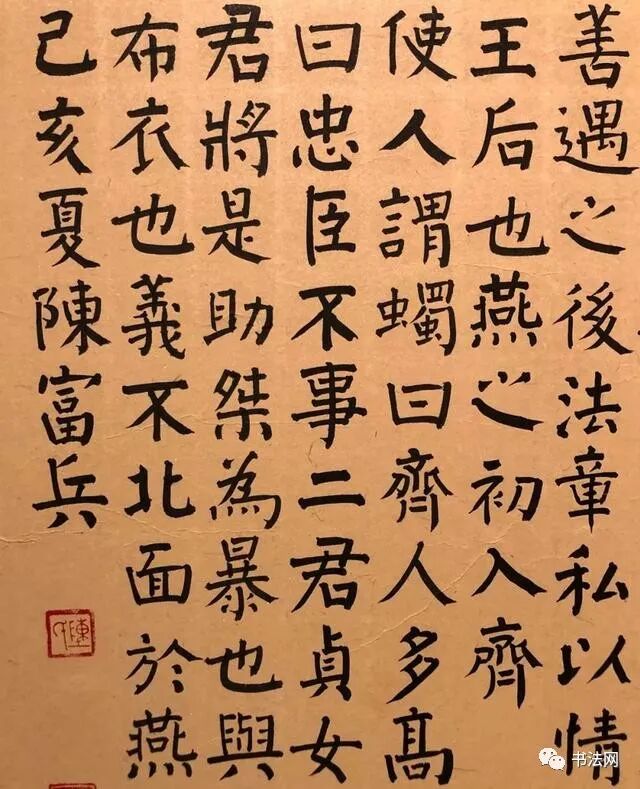 善遇之後法章私以情
王后也燕之初入齊
使人謂蠋曰齊人多高
曰忠臣不事二君貞女
君將是助桀為暴也與
布衣也義不北面於燕
己亥夏陳富兵
书法网